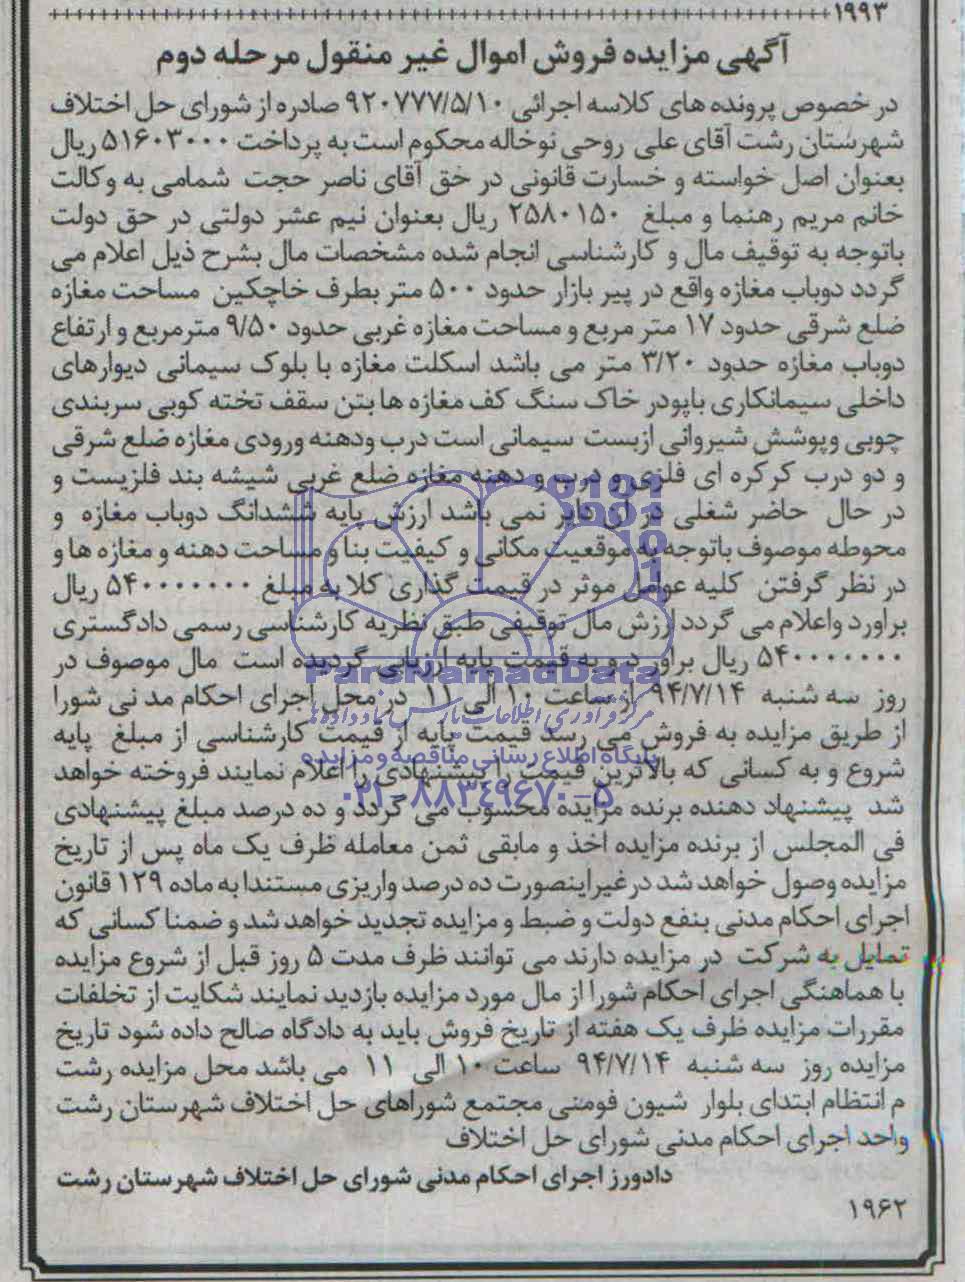 ۱۹۹۳
آگهی مزایده فروش اموال غیر منقول مرحله دوم
در خصوص پرونده های کلاسه اجرائی ۹۲۰۷۷۷/۵/۱۰ صادره از شورای حل اختلاف
شهرستان رشت آقای علی روحی نوخاله محکوم است به پرداخت ۵۱۶۰۳۰۰۰ ریال
بعنوان اصل خواسته و خسارت قانونی در حق آقای ناصر حجت شمامی به وکالت
خانم مریم رهنما و مبلغ ۲۵۸۰۱۵۰ ریال بعنوان نیم عشر دولتی در حق دولت
باتوجه به توقیف مال و کارشناسی انجام شده مشخصات مال بشرح ذیل اعلام می
گردد دوباب مغازه واقع در پیر بازار حدود ۵۰۰ متر بطرف خاچکین مساحت مغازه
ضلع شرقی حدود ۱۷ متر مربع و مساحت مغازه غربی حدود ۹/۵۰ مترمربع و ارتفاع
دوباب مغازه حدود ۳/۲۰ متر می باشد اسکلت مغازه با بلوک سیمانی دیوارهای
داخلی سیمانکاری باپودر خاک سنگ کف مغازه ها بتن سقف تخته کوبی سربندی
چوبی وپوشش شیروانی ازبست سیمانی است درب ودهنه ورودی مغازه ضلع شرقی
و دو درب کرکره ای فلزی و درب و دهنه مغازه ضلع غربی شیشه بند فلزیست و
در حال حاضر شغلی در آن دایر نمی باشد ارزش پایه ششدانگ دوباب مغازه و
محوطه موصوف باتوجه به موقعیت مکانی و کیفیت بنا و مساحت دهنه و مغازه ها و
در نظر گرفتن کلیه عوامل موثر در قیمت گذاری کلا به مبلغ ۵۴۰۰۰۰۰۰۰ ریال
براورد واعلام می گردد ارزش مال توقیفی طبق نظریه کارشناسی رسمی دادگستری
۵۴۰۰۰۰۰۰۰ ریال براورد و به قیمت پایه ارزیابی گردیده است مال موصوف در
روز سه شنبه ۹۴/۷/۱۴ از ساعت ۱۰ الی ۱۱ در محل اجرای احکام مدنی شورا
از طریق مزایده به فروش می رسد قیمت پایه از قیمت کارشناسی از مبلغ پایه
شروع و به کسانی که بالاترین قیمت را پیشنهادی را اعلام نمایند فروخته خواهد
شد پیشنهاد دهنده برنده مزایده محسوب می گردد و ده درصد مبلغ پیشنهادی
فی المجلس از برنده مزایده اخذ و مابقی ثمن معامله ظرف یک ماه پس از تاریخ
مزایده وصول خواهد شد درغیراینصورت ده درصد واریزی مستندا به ماده ۱۲۹ قانون
اجرای احکام مدنی بنفع دولت و ضبط و مزایده تجدید خواهد شد و ضمنا کسانی که
تمایل به شرکت در مزایده دارند می توانند ظرف مدت ۵ روز قبل از شروع مزایده
با هماهنگی اجرای احکام شورا از مال مورد مزایده بازدید نمایند شکایت از تخلفات
مقررات مزایده ظرف یک هفته از تاریخ فروش باید به دادگاه صالح داده شود تاریخ
مزایده روز سه شنبه ۹۴/۷/۱۴ ساعت ۱۰ الی ۱۱ می باشد محل مزایده رشت
م انتظام ابتدای بلوار شیون فومنی مجتمع شوراهای حل اختلاف شهرستان رشت
واحد اجرای احکام مدنی شورای حل اختلاف
دادورز اجرای احکام مدنی شورای حل اختلاف شهرستان رشت
۱۹۶۲
ParsNamadData
مرکز فرآوری اطلاعات پارس نماد داده ها
پایگاه اطلاع رسانی مناقصه و مزایده
۰۲۱-۸۸۳۴۹۶۷۰-۵